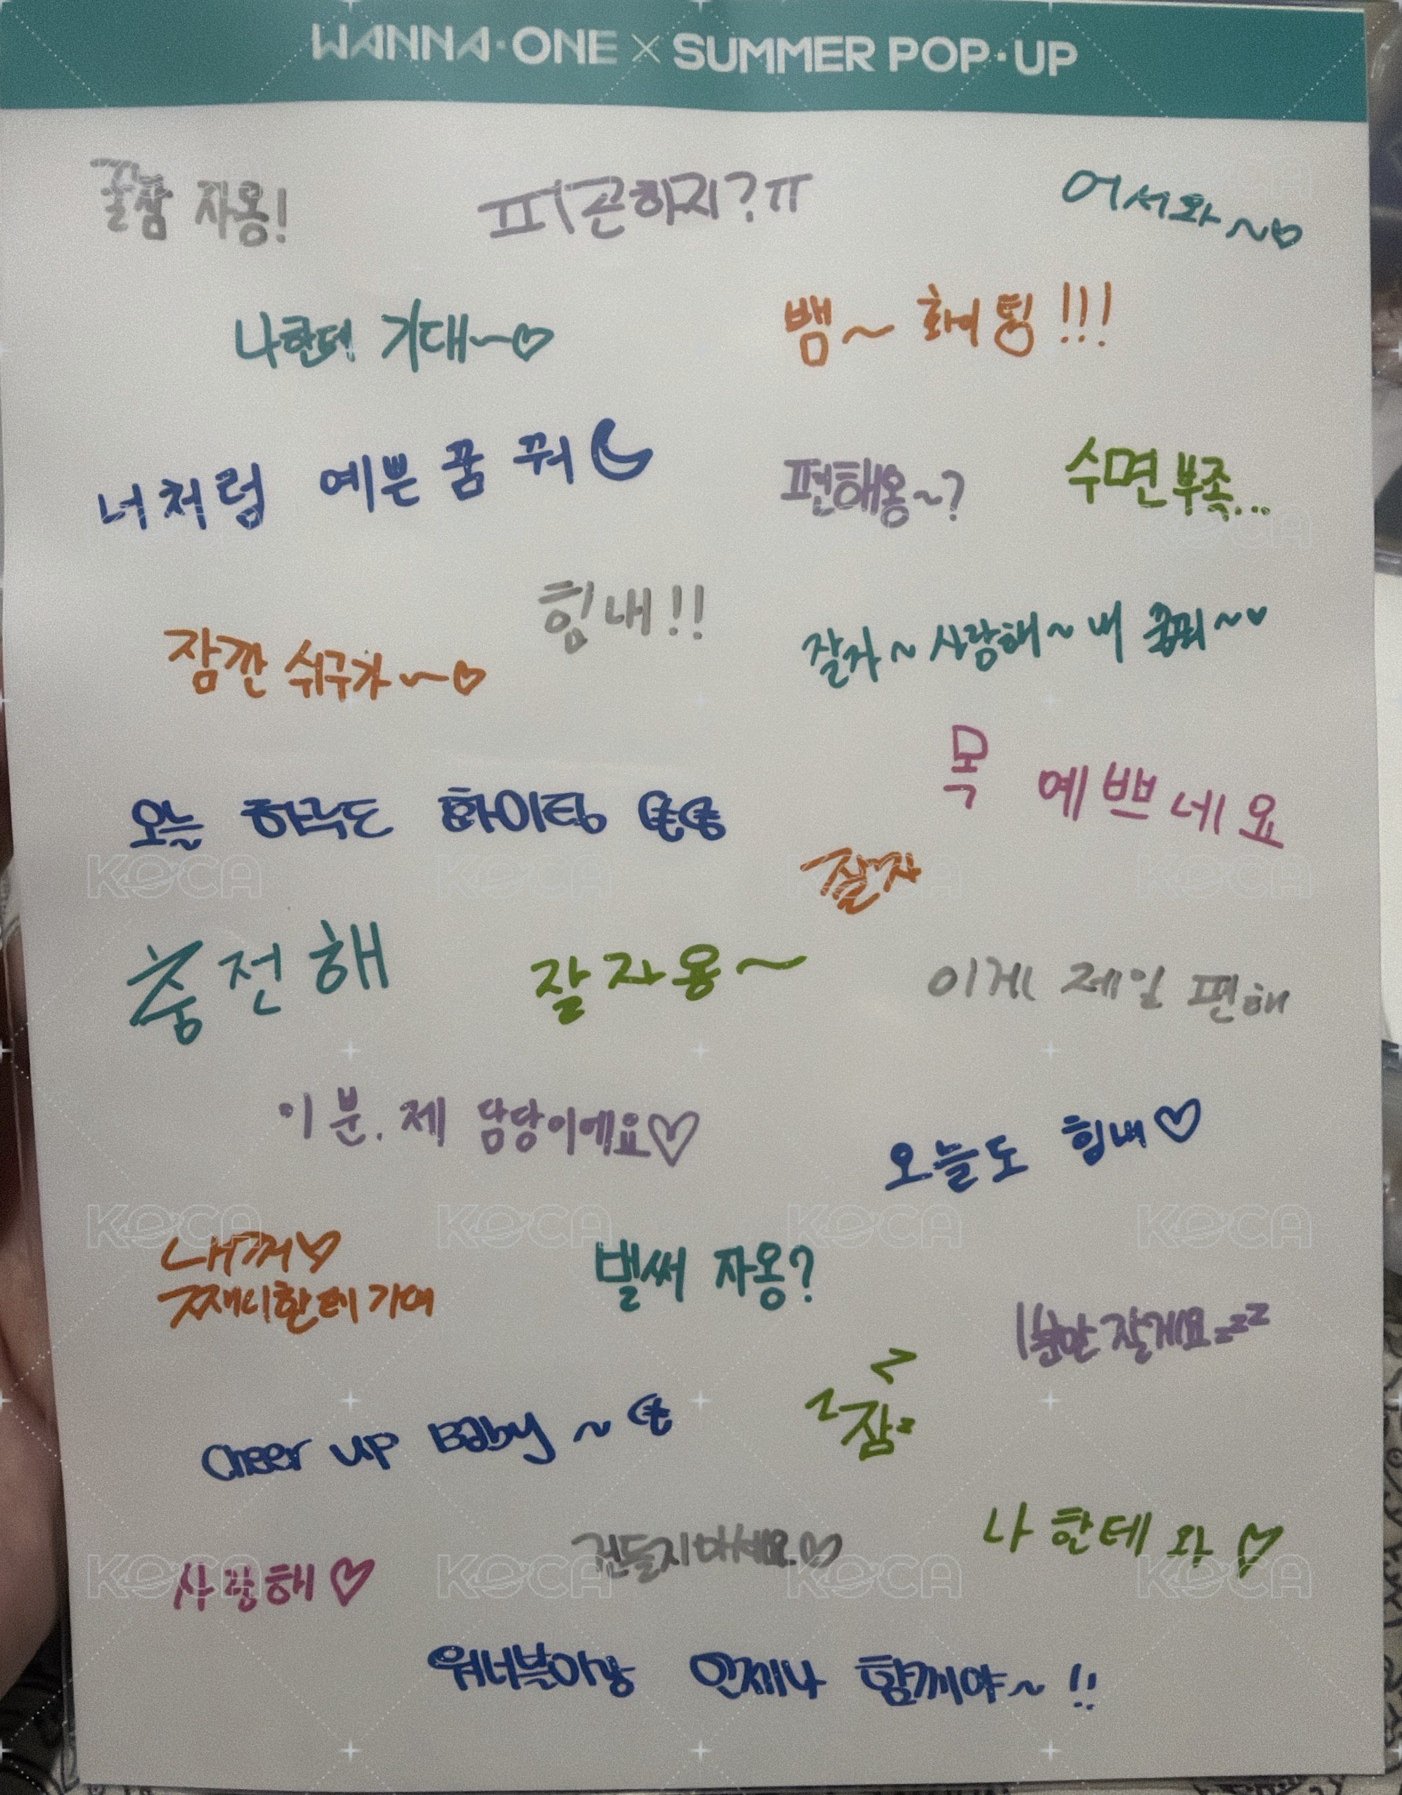 WANNA·ONE × SUMMER POP·UP
꿀잠 자용!
피곤하지?ㅠ
어서와~♡
나한테 기대~♡
뱀~ 화이팅!!!
너처럼 예쁜 꿈 꿔
편해용~?
수면부족...
힘내!!
잠깐 쉬구가~♡
잘자~사랑해~내 꿈꿔~♥
목 예쁘네요
오늘 하루도 화이팅
잘자
충전해
잘자용~
이게 제일 편해
이분, 제 담당이에요♡
오늘도 힘내♡
내꺼♡
벌써 자용?
째니한테 기여
1분만 잘게요zzz
zz잠z
Cheer up Baby ~
나한테 와♡
건들지마세요.♡
사랑해♡
워너블이랑 언제나 함께야~!!
KOCA KOCA KOCA KOCA
KOCA KOCA KOCA KOCA
KOCA KOCA KOCA KOCA